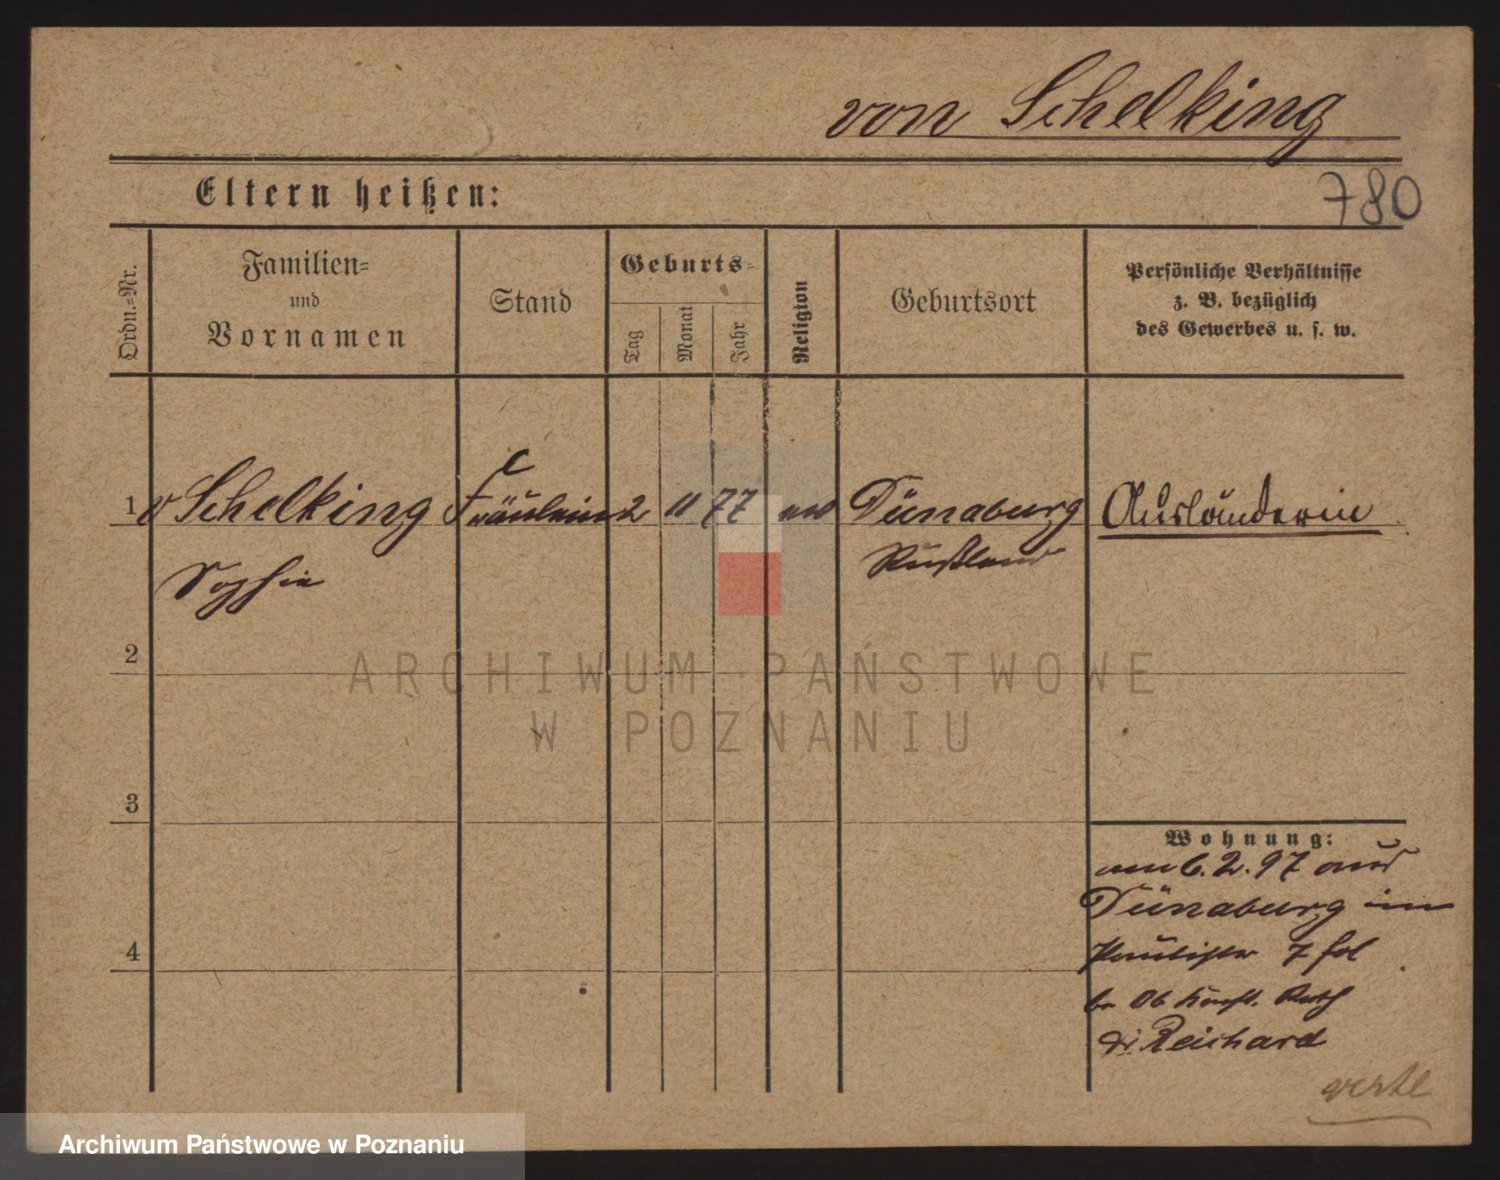 von Schelking
Eltern heißen:
780
Ordn.-Nr.
Familien-
und
Vornamen
Stand
Geburts-
Tag
Monat
Jahr
Religion
Geburtsort
Persönliche Verhältnisse
z. B. bezüglich
des Gewerbes u. s. w.
1 v Schelking Fräulein 2 11 77 ev Dünaburg Ausländerin
Sophie Rußland
2
3
4
Wohnung:
am 6. 2. 97 aus
Dünaburg in
7 fol
Ob Konst. Rath
Reichard
ARCHIWUM PAŃSTWOWE
W POZNANIU
Archiwum Państwowe w Poznaniu